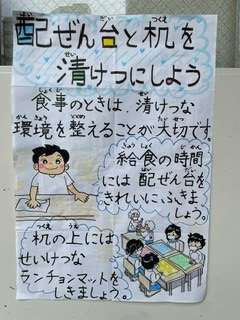 配ぜん台と机を
清けつにしよう
食事のときは、清けつな
環境を整えることが大切です。
給食の時間
には配ぜん台を
きれいに、ふきま
しょう。
机の上には
せいけつな
ランチョンマットを
しきましょう。